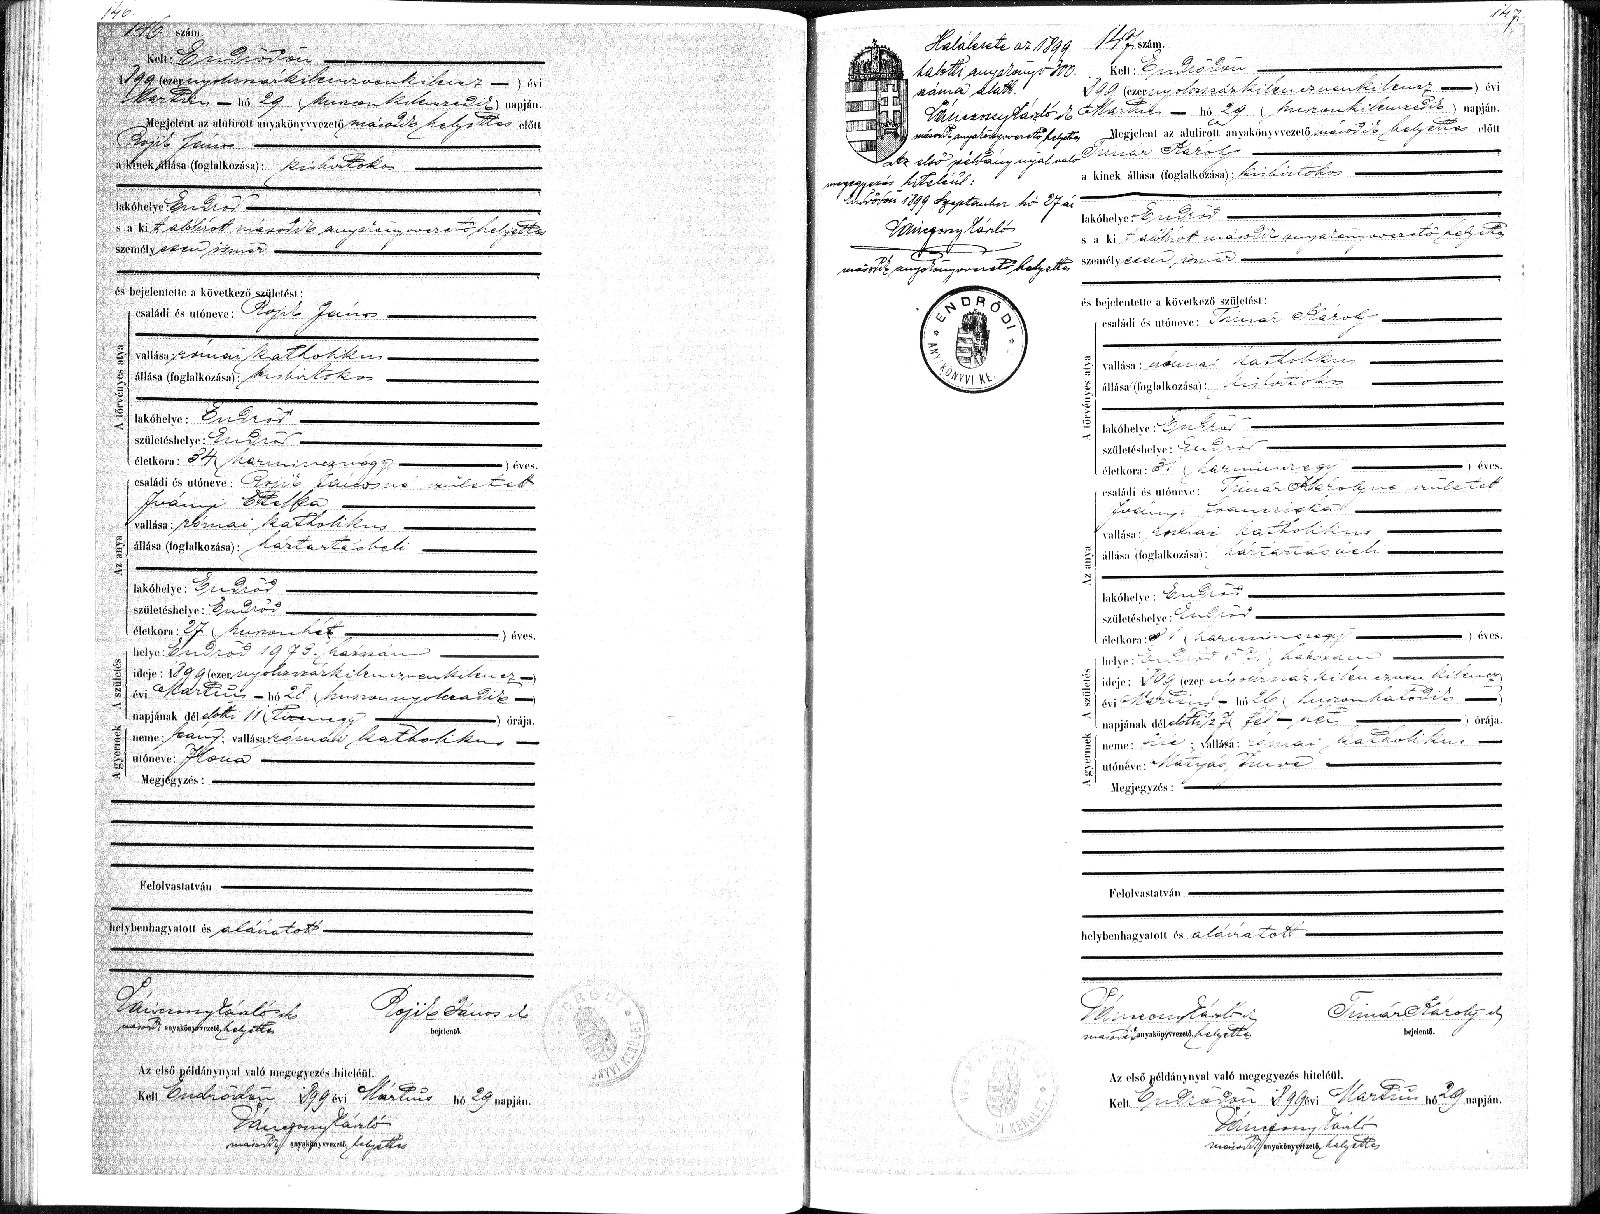 146.
146. szám.
Kelt: Endrődön
1899 (ezernyolczszázkilenczvenkilencz) évi
Martius hó 29 (huszonkilenczedik) napján.
Megjelent az alulirott anyakönyvvezető második helyettes előtt
Rojik János
a kinek állása (foglalkozása): kisbirtokos
lakóhelye: Endrőd
s a kit alulirott második anyakönyvvezető helyettes
személyesen ismer
és bejelentette a következő születést:
A törvényes atya
családi és utóneve: Rojik János
vallása: római katholikus
állása (foglalkozása): kisbirtokos
lakóhelye: Endrőd
születéshelye: Endrőd
életkora: 34 (harmincznégy) éves.
Az anya
családi és utóneve: Rojik Jánosné született
Iványi Etelka
vallása: római katholikus
állása (foglalkozása): háztartásbeli
lakóhelye: Endrőd
születéshelye: Endrőd
életkora: 27 (huszonhét) éves.
A születés
helye: Endrőd 1973. házszám
ideje: 1899 (ezernyolczszázkilenczvenkilencz)
évi Martius hó 28 (huszonnyolczadik)
napjának délelőtti 11 (tizenegy) órája.
A gyermek
neme: leány; vallása: római katholikus
utóneve: Ilona
Megjegyzés:
Felolvastatván
helybenhagyatott és aláiratott
Rojik János
második anyakönyvvezető, helyettes
bejelentő.
Az első példánynyal való megegyezés hiteléül.
Kelt Endrődön 1899 évi Martius hó 29 napján.
második anyakönyvvezető, helyettes
147.
Halálesete az 1899
halotti anyakönyv 300.
száma alatt.
második anyakönyvvezető helyettes
Az első példánynyal való
megegyezés hiteléül:
Endrődön 1899 Szeptember hó 27 én
második anyakönyvvezető helyettes
ENDRŐDI
ANYAKÖNYVI KE.
147. szám.
Kelt: Endrődön
1899 (ezernyolczszázkilenczvenkilencz) évi
Martius hó 29 (huszonkilenczedik) napján.
Megjelent az alulirott anyakönyvvezető második helyettes előtt
Timár Károly
a kinek állása (foglalkozása): kisbirtokos
lakóhelye: Endrőd
s a kit alulirott második anyakönyvvezető helyettes
személyesen ismer
és bejelentette a következő születést:
A törvényes atya
családi és utóneve: Timár Károly
vallása: római katholikus
állása (foglalkozása): kisbirtokos
lakóhelye: Endrőd
születéshelye: Endrőd
életkora: 31 (harminczegy) éves.
Az anya
családi és utóneve: Timár Károlyné született
vallása: római katholikus
állása (foglalkozása): háztartásbeli
lakóhelye: Endrőd
születéshelye: Endrőd
életkora: 31 (harminczegy) éves.
A születés
helye: Endrőd házszám
ideje: 1899 (ezernyolczszázkilenczvenkilencz)
évi Martius hó 26 (huszonhatodik)
napjának délelőtti órája.
A gyermek
neme: vallása: római katholikus
utóneve: Mátyás, Imre
Megjegyzés:
Felolvastatván
helybenhagyatott és aláiratott
Timár Károly
második anyakönyvvezető, helyettes
bejelentő.
Az első példánynyal való megegyezés hiteléül.
Kelt Endrődön 1899 évi Martius hó 29 napján.
második anyakönyvvezető, helyettes